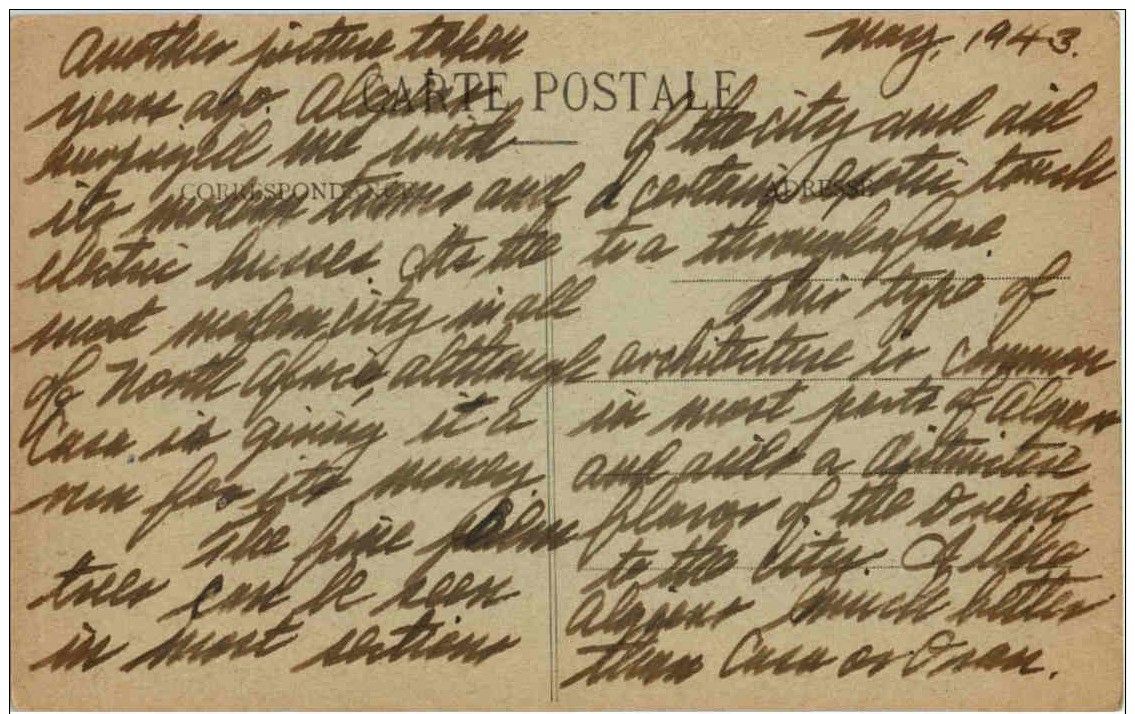 May, 1943.
CARTE POSTALE
CORRESPONDANCE
ADRESSE
Another picture taken
years ago. Algiers
surprised me with
its modern trams and
electric busses. Its the
most modern city in all
of North Africa, although
Casa is giving it a
run for its money.
The fine palm
trees can be seen
in most sections
of the city and aid
a certain exotic touch
to a thoroughfare.
This type of
architecture is common
in most parts of Algiers
and aids a distinctive
flavor of the Orient
to the city. I like
Algiers much better
than Casa or Oran.